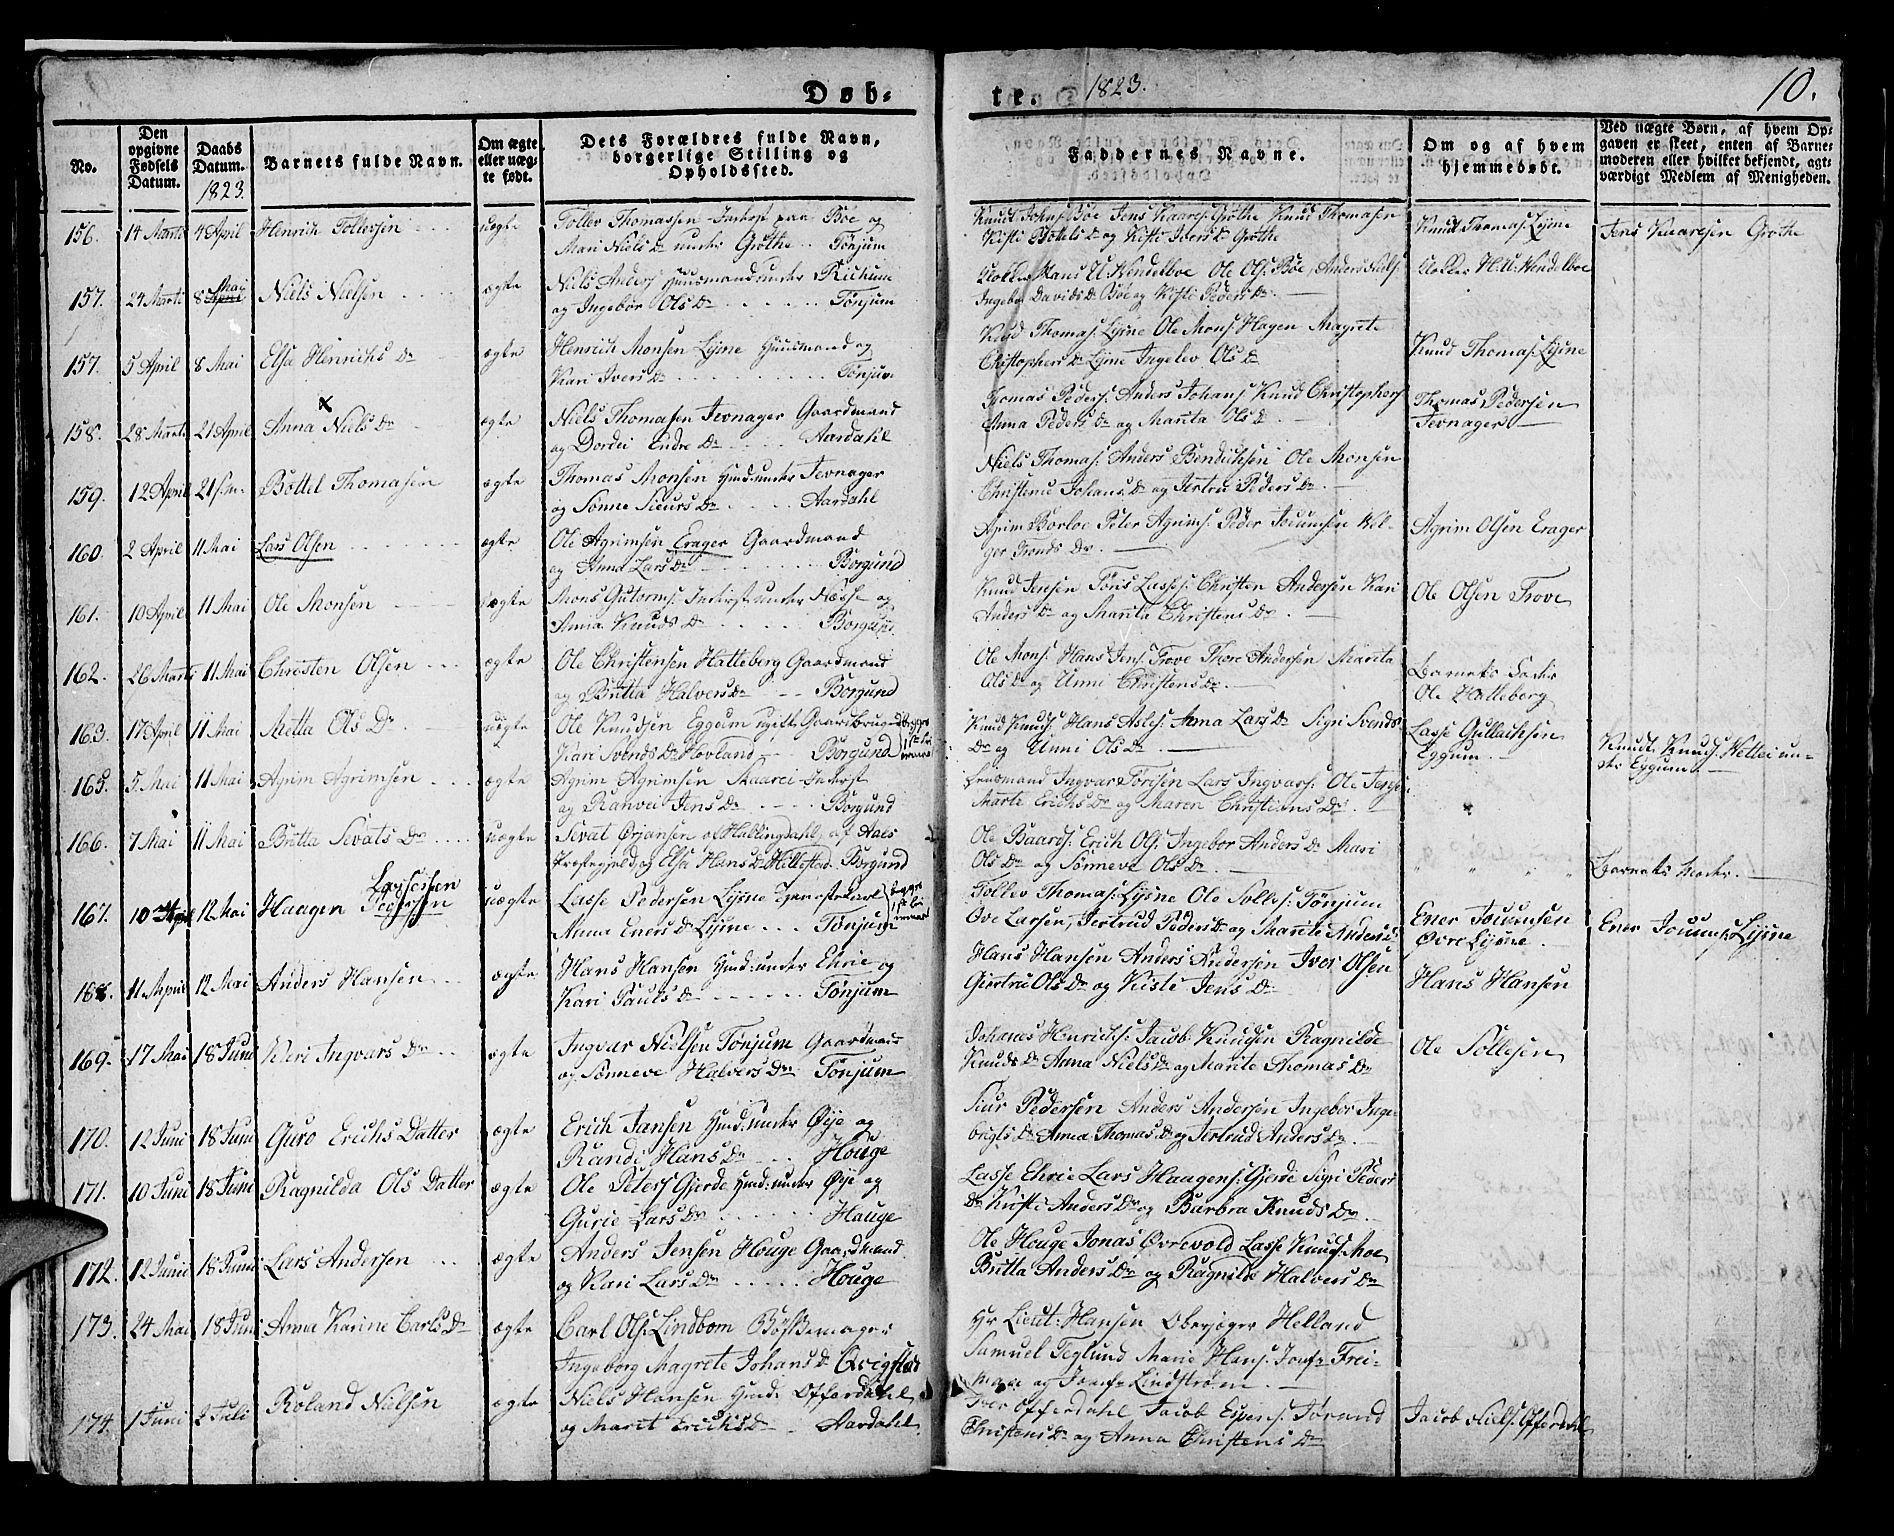 Døb-
te.
1823.
10.
No.
Den
opgivne
Fødsels
Datum.
Daabs
Datum.
1823
Barnets fulde Navn.
Om ægte
eller uæg-
te født.
Dets Forældres fulde Navn,
borgerlige Stilling og
Opholdssted.
Faddernes Navne.
Om og af hvem
hjemmedøbt.
Ved uægte Børn, af hvem Op-
gaven er skeet, enten af Barne-
moderen eller hvilket bekjendt, agt-
værdigt Medlem af Menigheden.
156. 14 Marts 4 April Henrich Tollevsen uægte Tollev Thomassen Inderst paa Böe og
Mari Niels Dr under Grøthe Tönjum
Knud Johns Böe Jens Kaares Grøthe Knud Thomasen
Kisti Bottels Dr og Kisti Ivers Dr Grøthe
Knud Thomas Lysne
Jens Kaaresen Grøthe
157. 24 Marts 8 April Mai Niels Nielsen ægte Niels Anders Huusmand under Richum
og Ingebor Ols Dr Tønjum
Klokker Hans U: Wendelboe Ole Ols Böe, Anders Niels
Ingebor Davids Dr Böe og Kisti Peders Dr
Klokker H: U: Wendelboe
157. 5 April 8 Mai Elsa Henrichs Dr ægte Henrich Monsen Lysne Huusmand og
Kari Ivers Dr Tönjum
Knud Thomas Lysne Ole Mons Hagen Magrete
Christophers Dr Lysne Ingelev Ols Dr
Knud Thomas Lysne
158. 28 Marts 21 April Anna Niels Dr ægte Niels Thomasen Tevnager Gaardmand
og Dordei Endre Dr Aardahl
Thomas Peders Anders Johans Knud Christophers
Anna Peders Dr og Marita Ols D
Thomas Pedersen
Tevnager
159. 12 April 21 s.m. Bottel Thomasen ægte Thomas Monsen Hmd: under Tevnager
og Sønne Sieurs Dr Aardahl
Niels Thomas Anders Bendichsen Ole Monsen
Christense Johans Dr og Jertru Peders Dr
160 2 April 11 Mai Lars Olsen ægte Ole Agrimsen Erager Gaardmand
og Anna Lars Dr Borgund
Agrim Borloe Peter Agrims Peder Jouumsen Wel-
ger Tronds Dr
Agrim Olsen Erager
161. 10 April 11 Mai Ole Monsen uægte Mons Gutorms Inderst under Næsse og
Anna Knuds Dr Borgund
Knud Jensen Töris Lasses Christen Andersen Kari
Anders Dr og Marita Christens Dr
Ole Olsen Trove
162. 26 Marts 11 Mai Christen Olsen ægte Ole Christensen Hatleberg Gaardmand
og Britta Halvers Dr Borgund
Ole Mons Hans Jens Trove Thore Andersen Marita
Ols Dr og Unni Christens Dr
Barnets Fader
Ole Hatleberg
163. 17 April 11 Mai Metta Ols Dr uægte Ole Knudsen Eggum ugift Gaardbruger
Kari Svends Dr Hovland Borgund
Knud Knuds Hans Asles Anna Lars Dr Sigri Svends
Dr og Unni Ols Dr
Lasse Gullachsen
Eggum
Knud Knuds Wetlei un-
der Eggum
165. 5 Mai 11 Mai Agrim Agrimsen ægte Agrim Agrimsen Skaarei Inderst
og Ranvei Jens Dr Borgund
Lensmand Ingvar Torisen Lars Ingvars Ole Jens
Marte Erichs Dr og Maren Christiens Dr
166. 7 Mai 11 Mai Britta Sevats Dr uægte Sevat Ørjansen af Hallingdahl, af Aaes
Præstegjeld og Elsa Hans Dr Hillestad Borgund
Ole Baards Erich Ols Ingebor Anders Dr Mari
Ols Dr og Sönneva Ols Dr
Barnets Moder
167. 10 April 12 Mai Haagen Pedersen Lassessen uægte Lasse Pedersen Lysne Tjenestekarl
Anna Eners Dr Lysne Tønjum
Tollev Thomas Lysne Ole Solles Tönjum
Ove Larsen, Jertrud Peders Dr og Marite Anders
Ener Jouumsen
Øvre Lysne
Ener Jouums Lysne
168. 11 April 12 Mai Anders Hansen ægte Hans Hansen Hmd: under Ehrie og
Kari Pauls Dr Tønjum
Hans Hansen Anders Andersen Iver Olsen
Giertru Ols Dr og Kisti Jens Dr
Hans Hansen
169. 17 Mai 18 Juni Kari Ingvars Dr ægte Ingvar Nielsen Tønjum Gaardmand
og Sönneve Halvers Dr Tönjum
Johanes Henrichs Jacob Knudsen Ragnilde
Knuds Dr Anna Niels Dr og Marite Thomas Dr
Ole Sollesen
170. 12 Juni 18 Juni Guro Erichs Datter ægte Erich Jansen Hmd: under Øye og
Randi Hans Dr Houge
Siur Pedersen Anders Andersen Ingebor Inge-
brigts Dr Anna Thomas Dr og Jertrud Anders Dr
171. 10 Juni 18 Juni Ragnilda Ols Datter ægte Ole Peters Gjerde Hmd: under Øye og
Gurie Lars Dr Houge
Lasse Ehrie Lars Haagens Gjerde Sigri Peders
Dr Kristi Anders Dr og Barbra Knuds Dr
172. 12 Juni 18 Juni Lars Andersen ægte Anders Jensen Houge Gaardmand
og Kari Lars Dr Houge
Ole Houge Jonas Øvrevold Lasse Knuds Moe
Britta Anders Dr og Ragnilde Halvers Dr
173. 24 Mai 18 Juni Anna Karine Carls Dr ægte Carl Ols Lindbom Bössemager
Ingeborg Magrete Johans Dr Qvigstad
Hr Lieut: Hansen Oberjæger Helland
Samuel Teglund Marie Hans Jomfr Frei-
mann og Jomfr Lindstrøm
174. 1 Juni 2 Juli Roland Nielsen ægte Niels Hansen Hmd: Offerdahl
og Marit Erichs Dr Aardahl
Iver Offerdahl Jacob Espens Jörand
Christens Dr og Anna Christens Dr
Jacob Niels Offerdahl